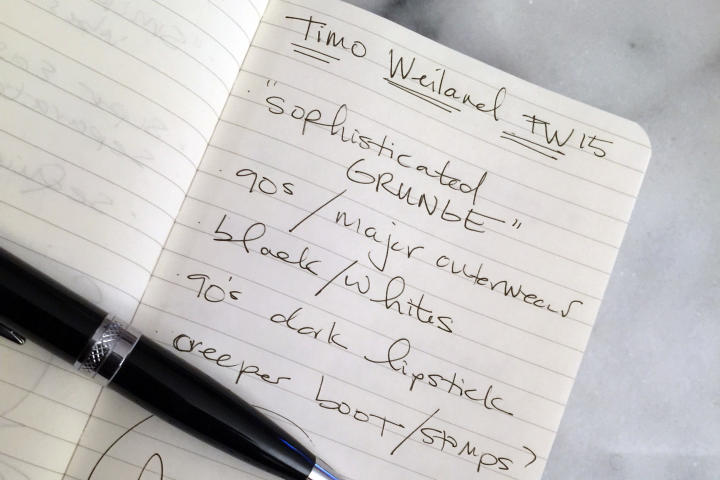 Timo Weiland FW15
· "sophisticated
GRUNGE"
· 90s / major outerwear
· black/whites
· 90's dark lipstick
· creeper boot/stomps?